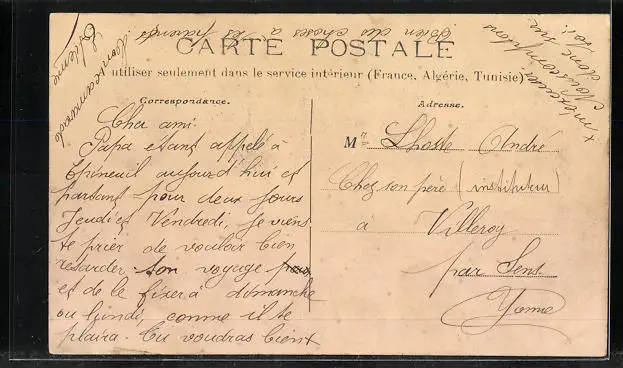 CARTE POSTALE
utiliser seulement dans le service intérieur (France, Algérie, Tunisie)
Correspondance.
Cher ami.
Papa étant appelé à
Epineuil aujourd'hui et
partant pour deux jours
Jeudi et Vendredi, je viens
te prier de vouloir bien
retarder ton voyage
et de le fixer à dimanche
ou lundi, comme il te
plaira. Tu voudras bien x
x m'excuser
donc sur
toi.
Nous comptons
Bien des choses à tes parents
Ton camarade
Etienne
Adresse.
Mr Lhoste André
Chez son père (instituteur)
à Villeroy
par Sens
Yonne